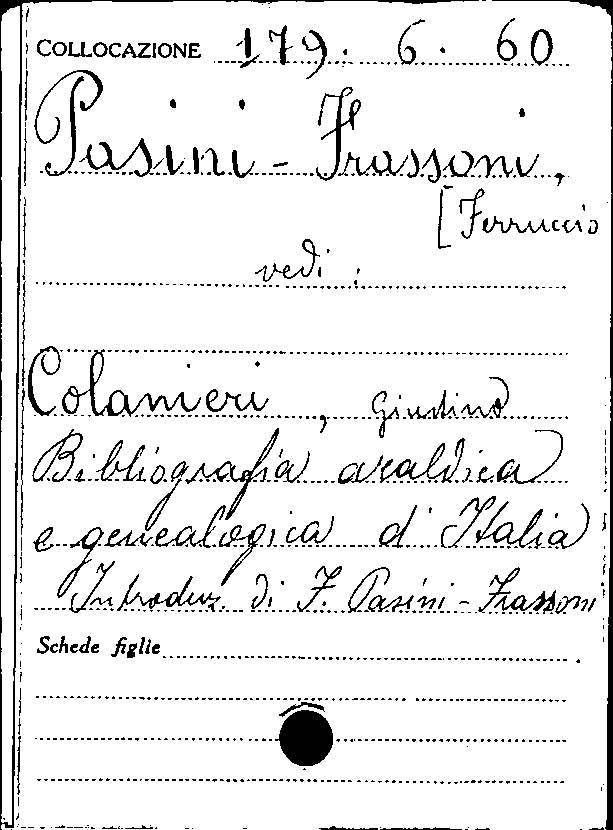 COLLOCAZIONE 179. 6. 60
Pasini - Frassoni,
[Ferruccio
vedi :
Colanieri, Giustino
Bibliografia araldica
e genealogica d'Italia
Introduz. di F. Pasini - Frassoni
Schede figlie